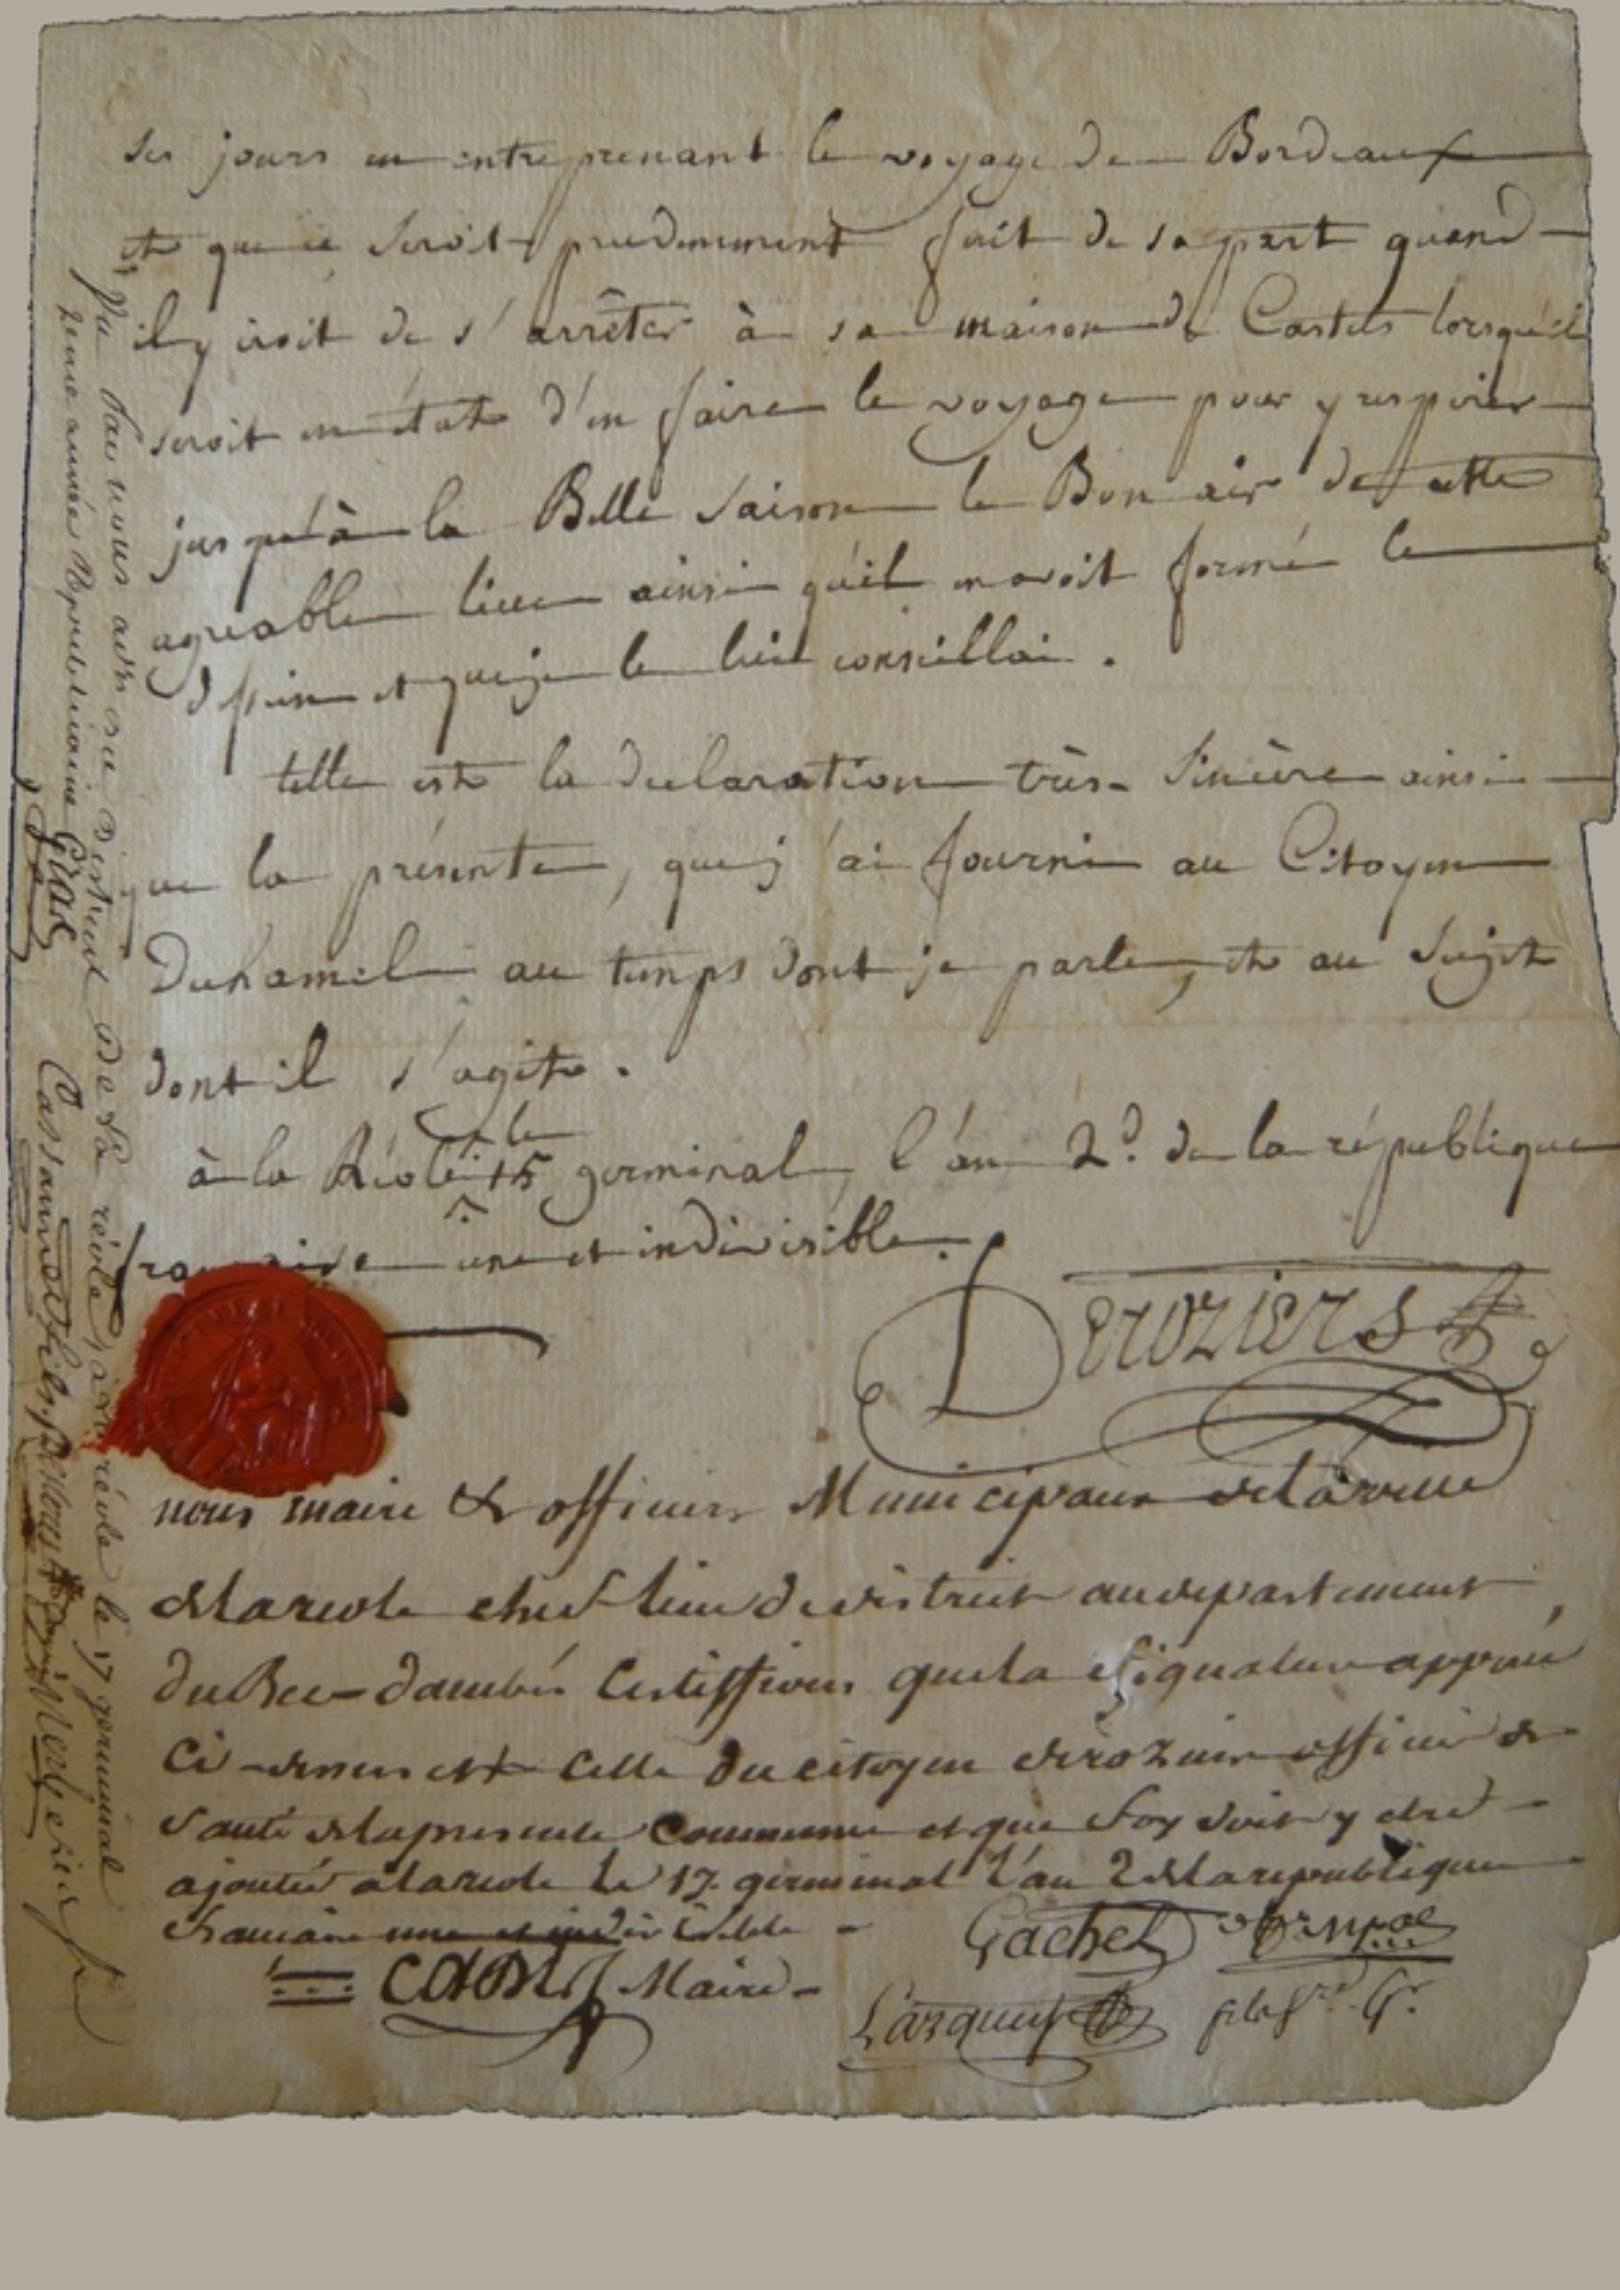 ses jours en entreprenant le voyage de Bordeaux
et que ce seroit prudemment fait de sa part quand
il y iroit de s'arrêter à sa maison de Castets lorsqu'il
seroit en état d'en faire le voyage pour y respirer
jusqu'à la Belle saison le Bon air de cette
agreable lieu ainsi qu'il en avoit formé le
dessein et que je le lui conseillai.
telle est la declaration très-sincère ainsi
que la présente, que j'ai fourni au Citoyen
Duhamel au temps dont je parle, et au sujet
dont il s'agit.
à la Réole le 15 germinal l'an 2d. de la république
française une et indivisible.
Deroziers
nous maire & officiers Municipaux de la ville
de la reole chef lieu de district au departement
du Bec-dambés Certiffions que la signature apposée
ci-dessus est celle du citoyen derozier officier de
santé de la presente Commune et que foy doit y etre
ajoutée a la reole le 17 germinal l'an 2 de la republique
francaise une et indivisible
Gachet off. mpal
Maire
Larquey
Vu par nous adm du district de la réole, à la réole le 17 germinal
2eme année Republicaine